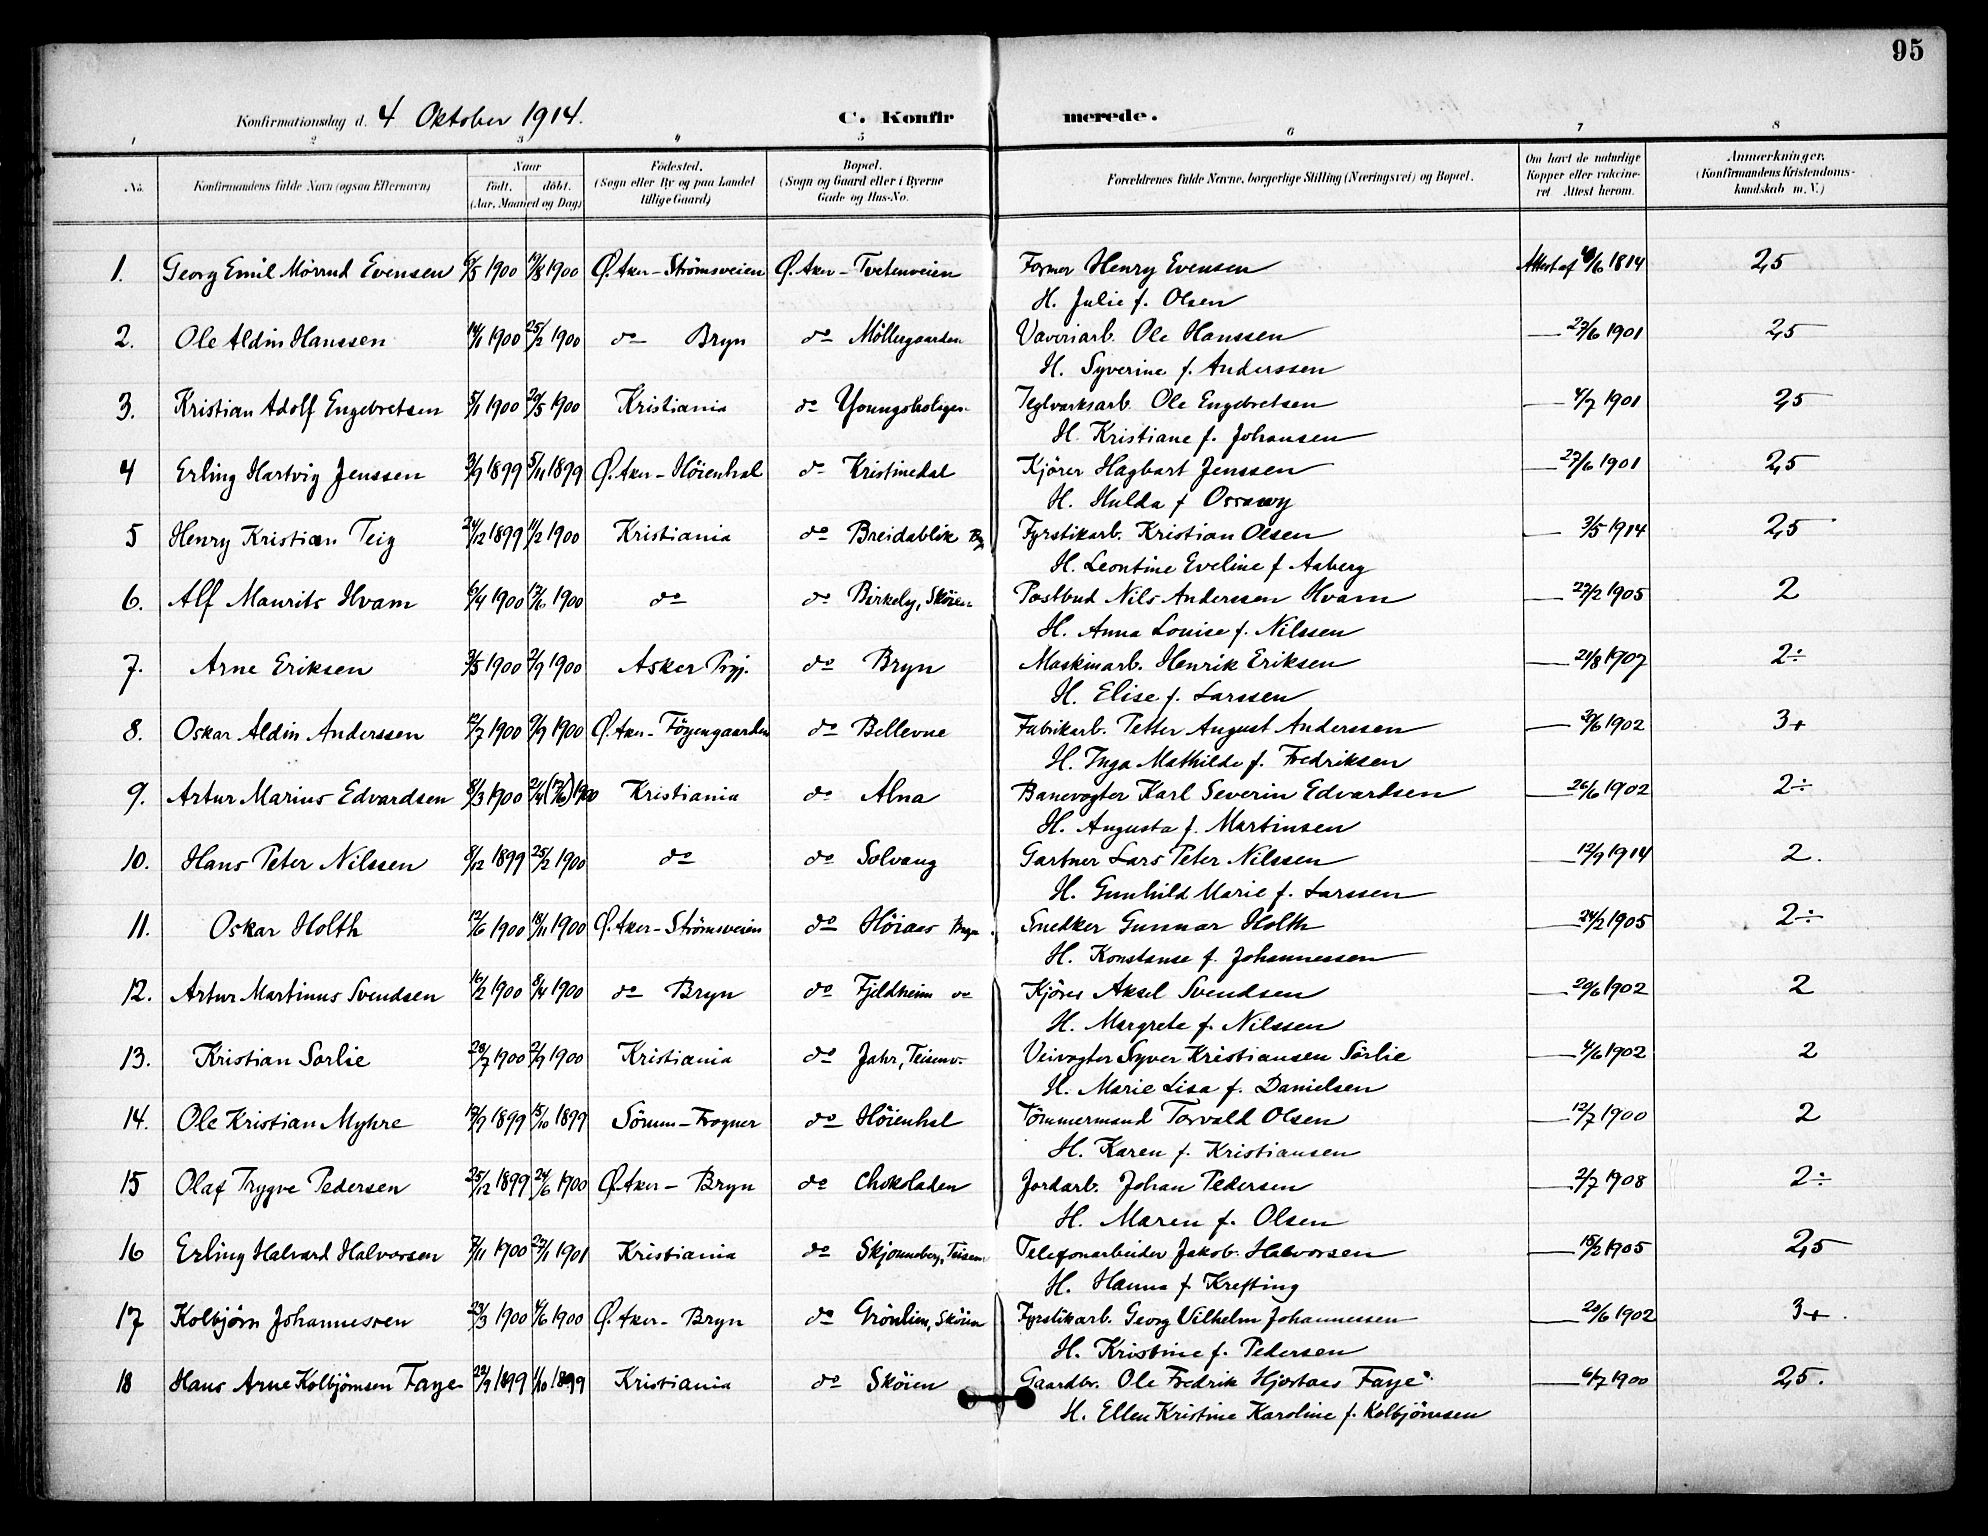 95
Konfirmationsdag d. 4 Oktober 1914. C. Konfirmerede.
1 2 3 4 5 6 7 8
No. Konfirmandens fulde Navn (ogsaa Efternavn) Naar født. døbt. (Aar, Maaned og Dag) Födested. (Sogn eller By og paa Landet tillige Gaard) Bopæl. (Sogn og Gaard eller i Byerne Gade og Hus-No. Forældrenes fulde Navne, borgerlige Stilling (Næringsvei) og Bopæl. Om havt de naturlige Kopper eller vaccineret Attest herom. Anmærkninger. (Konfirmandens Kristendomskundskab m. V.)
1. Georg Emil Mörrud Evensen /5 1900 /8 1900 Ø. Aker - Strömsveien Ø. Aker - Tvetenveien Former Henry Evensen Attest af /6 1814 2,5
H. Julie f. Olsen
2. Ole Aldin Hanssen 14/1 1900 25/2 1900 do Bryn do Möllergaarden Væveriarb. Ole Hanssen — 27/6 1901 2,5
H. Syverine f. Anderssen
3. Kristian Adolf Engebretsen 5/1 1900 20/5 1900 Kristiania do Youngsboligen Teglværksarb. Ole Engebretsen — 4/7 1901 2,5
H. Kristiane f. Johansen
4 Erling Hartvig Jenssen 3/9 1899 5/11 1899 Ø. Aker - Höienhal do Kristinedal Kjörer Hagbart Jenssen — 27/6 1901 2,5
H. Hulda f
5 Henry Kristian Teig 24/12 1899 11/2 1900 Kristiania do Breidablik Bryn Fyrstikarb. Kristian Olsen — 3/5 1914 2,5
H. Leontine Eveline f. Aaberg
6. Alf Maurits Hvam 6/4 1900 17/6 1900 do do Birkely, Skøien Postbud Nils Anderssen Hvam — 27/2 1905 2
H. Anna Louise f. Nilssen
7. Arne Eriksen 3/5 1900 2/9 1900 Asker Prgj. do Bryn Maskinarb. Henrik Eriksen — 21/8 1907 2÷
H. Elise f. Larssen
8. Oskar Aldin Anderssen 12/7 1900 9/9 1900 Ø. Aker - Töyengaarden do Bellevue Fabrikarb. Petter August Anderssen — 30/6 1902 3+
H. Inga Mathilde f. Fredriksen
9. Artur Marius Edvardsen 8/3 1900 2/4 (17/6) 1900 Kristiania do Alna Banevogter Karl Severin Edvardsen — 26/6 1902 2÷
H. Augusta f. Martinsen
10. Hans Peter Nilssen 8/12 1899 25/2 1900 do do Solvang Gartner Lars Peter Nilssen — 12/9 1914 2.
H. Gunhild Marie f. Larssen
11. Oskar Holth 12/6 1900 18/11 1900 Ø. Aker - Strömsveien do Höiaas Bryn Snedker Gunnar Holth — 24/2 1905 2÷
H. Konstanse f. Johannessen
12. Artur Martinus Svendsen 16/2 1900 8/4 1900 do Bryn do Fjeldheim do Kjörer Aksel Svendsen — 20/6 1902 2
H. Margrete f. Nilssen
13. Kristian Sørlie 28/7 1900 2/9 1900 Kristiania do Jahr, Teisenv. Veivogter Syver Kristiansen Sörlie — 4/6 1902 2
H. Marie Lisa f. Danielsen
14. Ole Kristian Myhre 17/7 1899 15/10 1899 Sörum - Frogner do Höienhal Tömmermand Torvald Olsen — 12/7 1900 2
H. Karen f. Kristiansen
15 Olaf Trygve Pedersen 25/12 1899 24/6 1900 Ø. Aker - Bryn do Chokoladen Jordarb. Johan Pedersen — 2/7 1908 2÷
H. Maren f. Olsen
16 Erling Halvard Halvorsen 7/11 1900 27/1 1901 Kristiania do Skjönneberg, Teisen Telefonarbeider Jakob Halvorsen — 15/2 1905 2,5
H. Hanna f Krefting
17 Kolbjörn Johannessen 23/3 1900 4/6 1900 Ø. Aker - Bryn do Grönlien, Sköien Fyrstikarb. Georg Vilhelm Johannessen — 20/6 1902 3+
H. Kristine f. Pedersen
18 Hans Arne Kolbjörnsen Faye 22/9 1899 1/10 1899 Kristiania do Sköien Gaardbr. Ole Fredrik Hjortaas Faye — 6/7 1900 2,5.
H. Ellen Kristine Karoline f. Kolbjörnsen